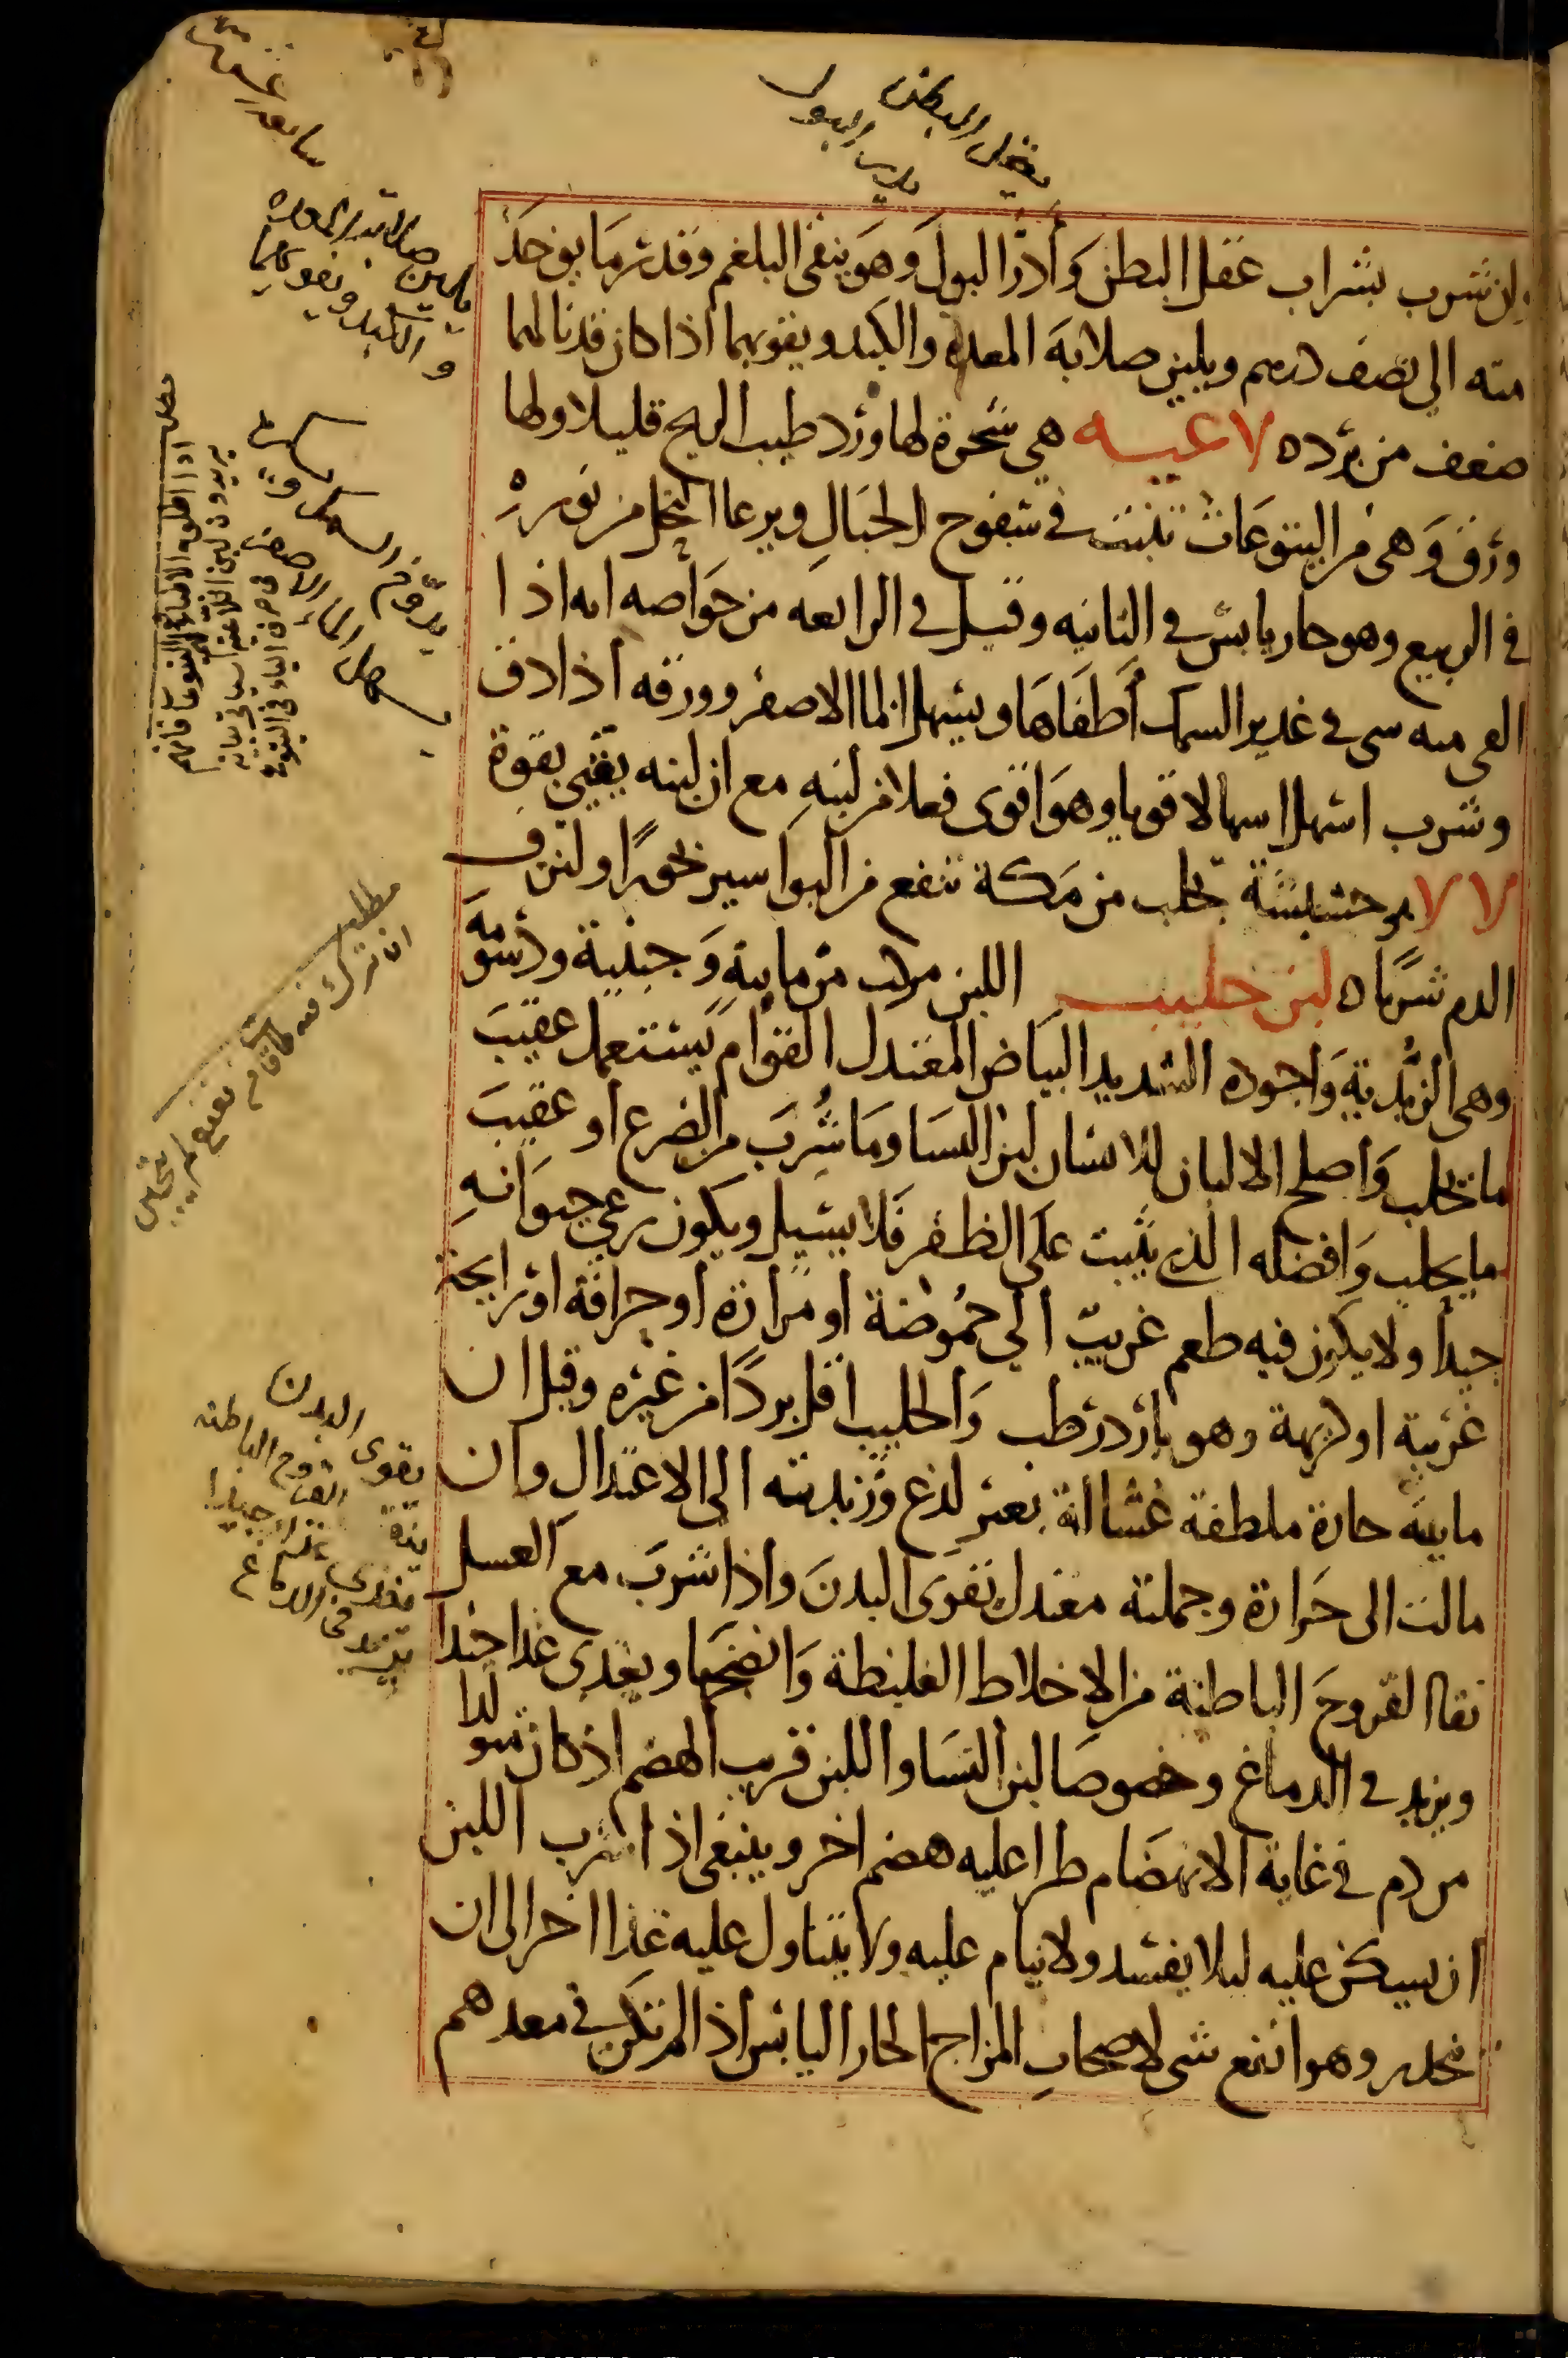 يعقل البطن
يدر البول
وان شرب بشراب عقل البطن وأدرّ البولَ وَهوَ ينقى البلغم وَقدر مَا يوخذ
منه الى نصف درهم ويلين صلابةَ المعده والكبد ويقويهما اذا كان قد نالهما
ضعف من برده لاعيه هى شجرة لها ورد طيب الريح قليلا ولها
ورق وَهى من اليتوعَات تنبت فى سفوح الجبَالِ ويرعا النحل من نوره
فى الربيع وهو حار يابس فى الثانيه وقيل فى الرابعه من خوَاصه انه اذا
القى منه شى فى غدير السمك أطفَاهَا ويسهل الما الاصفر وورقه اذا دق
وشرب اسهل اسهالا قويا وهوَ اقوى فعلا من لبنهِ مع ان لبنه يقيي بقوة
لالا هى حشيشة تجلب من مَكة تنفع من البواسير بخورًا ولنزف
الدم شربًا ه لبن حليب اللبن مركب من مايية وَجبنية ودسومَه
وهى الزبدية وَاجوده الشديد البيَاض المعتدل القوام يستعمل عقيبَ
ما يحلب وَاصلح الالبان للانسان لبن النسا ومَا شُربَ من الضرع أو عقيبَ
ما يحلب وَافضله الذى يثبت علَى الظفر فَلا يسيل ويكون رعى حيوَانهِ
جيدًا ولا يكون فيه طعم غريب الى حُموضة او مرارة أو حرافة اوْ رايحة
غريبة او كريهة وهو بارد رطب وَالحليب اقل بردًا من غيره وقيل ان
ماييته حارة ملطفة غسالة بغير لذع وزبديته الى الاعتدال وان
مالت الى حَرارة وجملته معتدل يقوى البدنَ واذا شربَ مع العسل
نقا القروحَ الباطنة من الاخلاط الغليظة وَانضجَها ويغدى غدا جيدا
ويزيد فى الدماغ وخصوصَا لبن النسَا واللبن قريب الهضم اذ كان متولدا
من دم فى غاية الانهضَام طرا عليه هضم اخر وينبغى اذا شرب اللبن
ان يسكن عليه ليلا يفسد ولا ينام عليه ولا يتناول عليه غذا اخر الى ان
ينحدر وهو انفع شى لاصحابِ المزاج الحار اليابس اذا لم تكن فى معدهم
يلين صلابة المعده
والكبد ويقويهما
يسهل الماء الاصفر
مطلب
يقوى البدن
ينقى القروح الباطنه
يغدى غداء جيدا
يزيد فى الدماغ